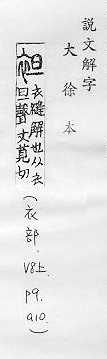 說文解字
大徐本
袒
衣縫解也从衣
旦聲丈莧切
(衣部. V8上. p9. a10.)